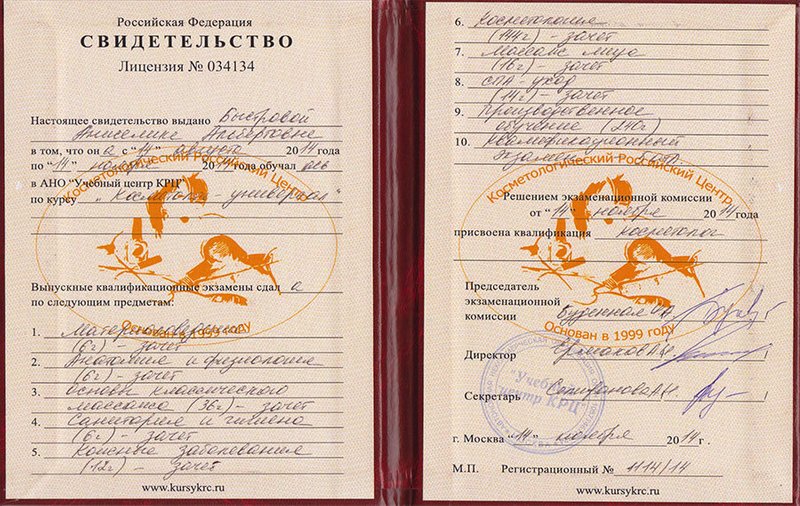 Российская Федерация
СВИДЕТЕЛЬСТВО
Лицензия № 034134
Настоящее свидетельство выдано Быстровой
Анжелике Альбертовне
в том, что он а с "14" августа 2014 года
по "14" ноября 2014 года обучал ась
в АНО "Учебный центр КРЦ"
по курсу „Косметолог - универсал"
Косметологический Российский Центр
Основан в 1999 году
Выпускные квалификационные экзамены сдал а
по следующим предметам:
1. Материаловедение
(6г) - зачёт
2. Анатомия и физиология
(6г) - зачёт
3. основы классического
массажа (36г) - зачёт
4. Санитария и гигиена
(6г) - зачёт
5. Кожные заболевания
(12г) - зачёт
www.kursykrc.ru
6. Косметология
(144г) - зачёт
7. Массаж лица
(16г) - зачёт
8. СПА-уход
(14г) - зачёт
9. Производственное
обучение (240г)
10. Квалификационный
экзамен
Косметологический Российский Центр
Решением экзаменационной комиссии
от "14" ноября 2014 года
присвоена квалификация косметолог
Председатель
экзаменационной
комиссии Буденная
Основан в 1999 году
Директор Ермаков
Секретарь
"Учебный
центр КРЦ"
г. Москва "14" ноября 2014 г.
М.П. Регистрационный № 1114/14
www.kursykrc.ru